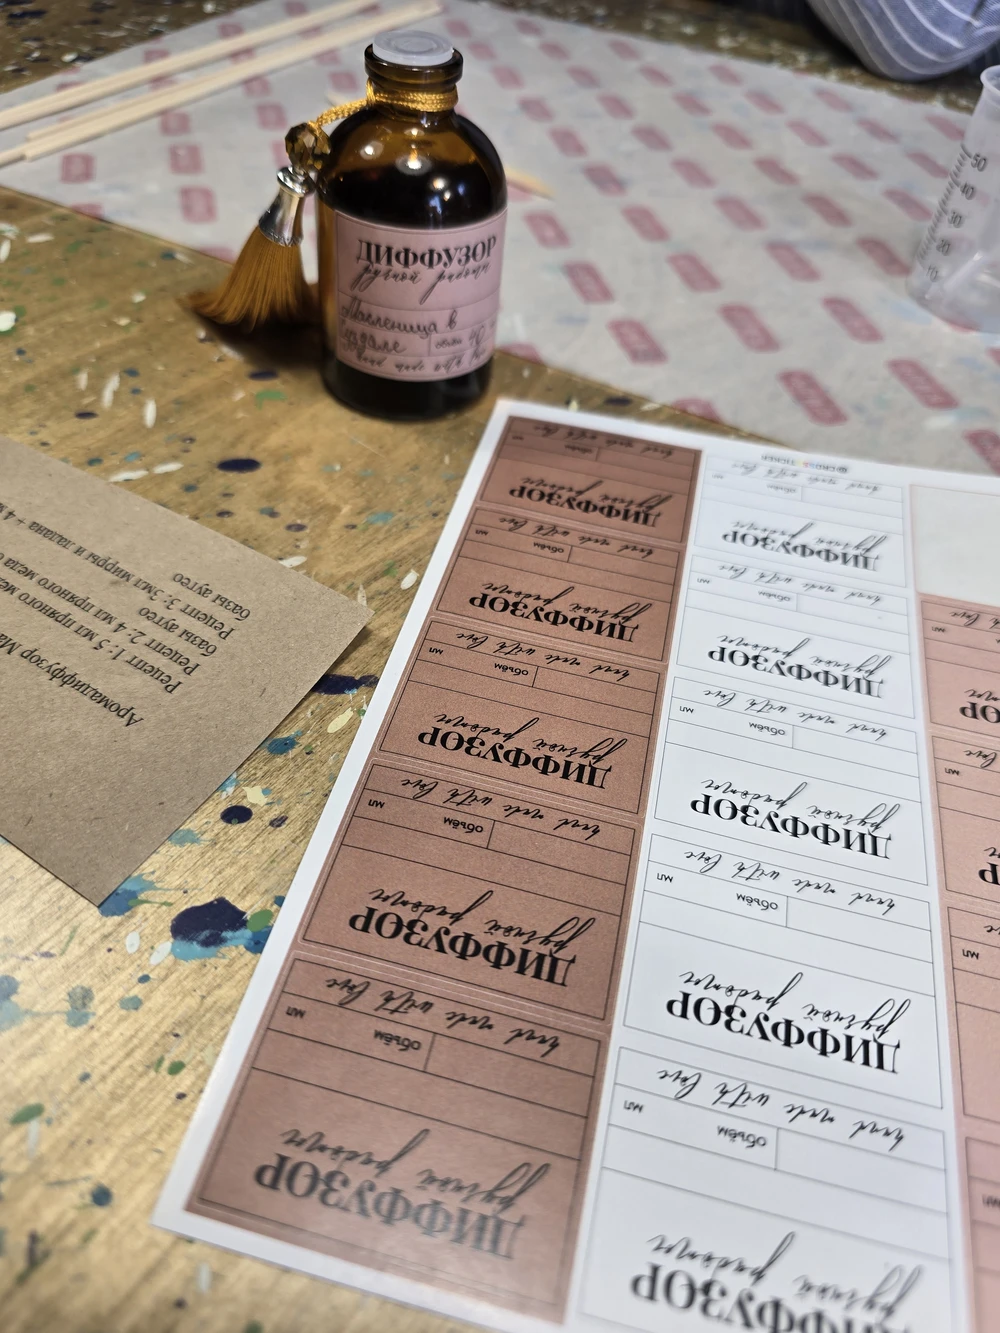 ДИФФУЗОР
ручной работы
Масленица в
Суздале
объём 40
hand made with love
50
40
30
20
10
Аромадиффузор Ма
Рецепт 1: 5 мл пряного ме
Рецепт 2: 4 мл пряного меда
базы аугео
Рецепт 3: 3мл мирры и ладана + 4
базы аугео
hand made with love
объём
ДИФФУЗОР
ручной работы
hand made with love
объём
мл
ДИФФУЗОР
ручной работы
hand made with love
объём
мл
ДИФФУЗОР
ручной работы
hand made with love
объём
мл
ДИФФУЗОР
ручной работы
hand made with love
объём
мл
ДИФФУЗОР
ручной работы
hand made with love
объём
ДИФФУЗОР
ручной работы
hand made with love
объём
мл
ДИФФУЗОР
ручной работы
hand made with love
объём
мл
ДИФФУЗОР
ручной работы
hand made with love
объём
мл
ДИФФУЗОР
ручной работы
hand made with love
объём
мл
ДИФФУЗОР
ручной работы
love
мл
love
мл
мл